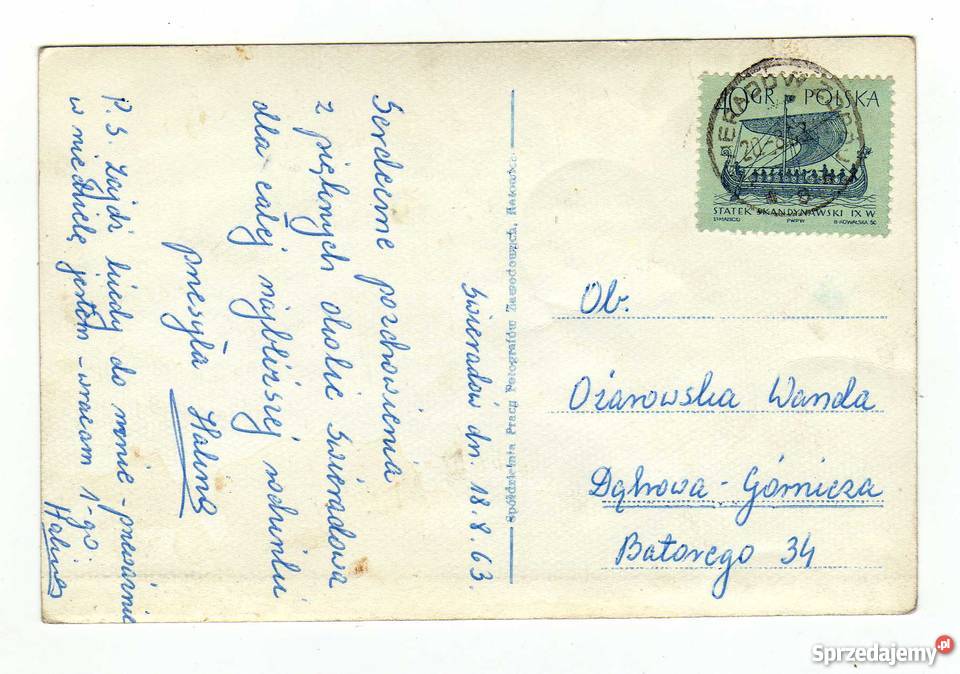 Świeradów dn. 18.8.63.
Serdeczne pozdrowienia
z pięknych okolic Świeradowa
dla całej najbliższej rodzinki
przesyła Halina
P.S. Zajdź kiedy do mnie - przeważnie
w niedzielę jestem - wracam 1-go.
Halina
Spółdzielnia Pracy Fotografów Zawodowych, Katowice
40 GR POLSKA
20.-8.63
STATEK SKANDYNAWSKI IX W
PWPW
B. KOWALSKA SC
Ob.
Ożarowska Wanda
Dąbrowa - Górnicza
Batorego 34
Sprzedajemy.pl